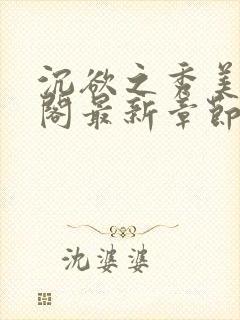 沉欲之秀美
阁最新章节
沈婆婆